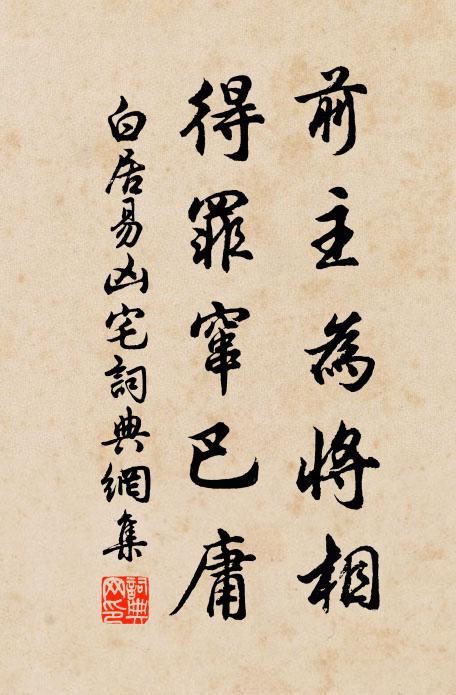 前主為將相
得罪竄巴庸
白居易凶宅詞典網集
詞典網印